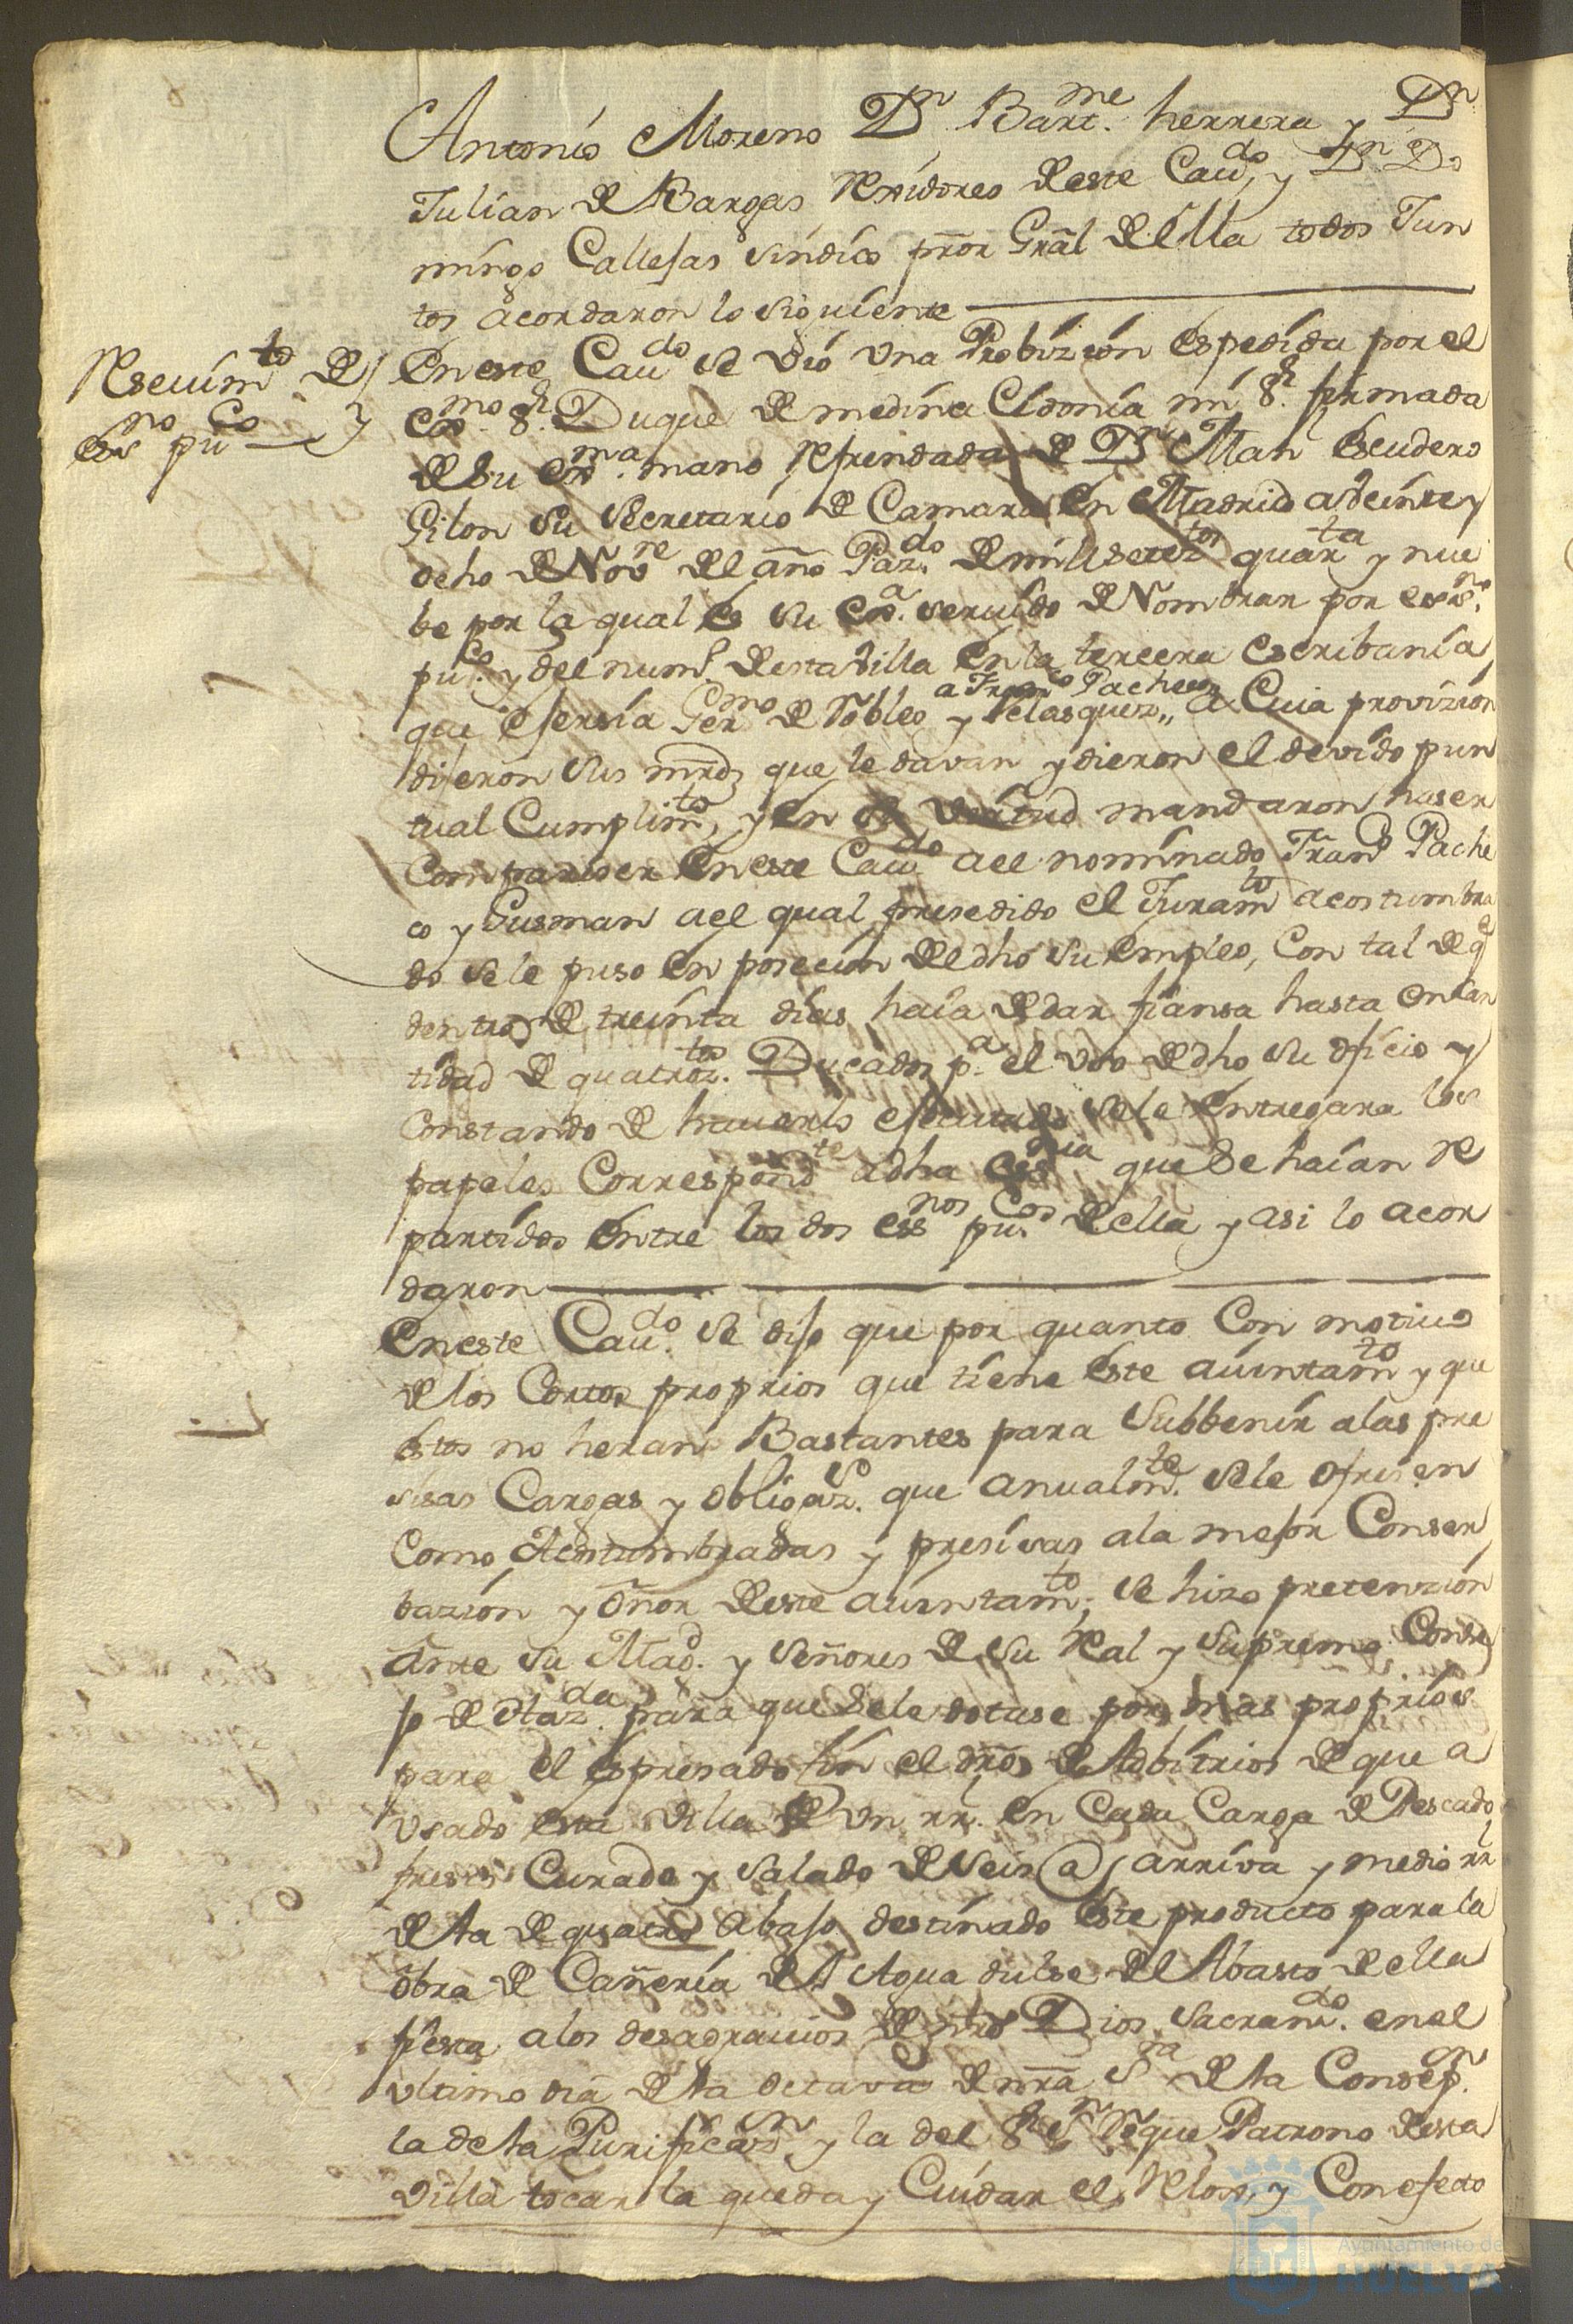 Antonio Moreno Dn Bartme. herrera y Dn
Julian de Bargas Rexidores deste Caudo, y Dn Do
mingo Callejas Sindico pror Gral de ella todos Jun
tos acordaron lo siguiente
Resevimto de
essno puco
En este Caudo se vio una Probizion espedida por el
Exmo Sr. Duque de medina Cidonia mi Sr. firmada
de su exma. mano Refrendada de Dn Man Escudero
Gilon su Secretario de Camara en Madrid a veinte y
ocho de Novre del año Pazdo. de mill seteztos quarta y nue
be por la qual es su Exa. servido de Nombrar por essno.
puco. y del numo. desta villa en la tercera escribania
que efersia Germo de Robles a Franco Pacheco
y Velasquez,, a Cuia provizion
dijeron sus mrds que le davan y dieron el devido pun
tual Cumplimto, y en su virtud mandaron haser
Compareser en este Caudo a el nominado Frano Pache
co y Gusman a el qual presedido el Juramto acostumbra
do se le puso en posecion del dho su empleo, Con tal de q
dentro de treinta dias haia de dar fiansa hasta en Can
tidad de quatroztos. Ducados pa. el uso de dho su oficio y
Constando de haverlo efecutado se le entregara los
papeles Correspondte a dha essnia que se haian Re
partidos entre los dos essnos pucos de ella y asi lo acor
daron
En este Caudo. se dijo que por quanto Con motivo
de los Cortos proprios que tiene este aiuntamto y que
estos no heran Bastantes para Subbenir a las pre
sisas Cargas y obligazs. que anualmte. se le ofresen
Como Acostumbradas y presisas a la mejor Conser
bazion y onor deste aiuntamto; se hizo pretenzion
ante su Magd. y Señores de su Real y Supremo Conse
jo de Hazda. para que se le dotase por mas proprios
para el espresado fin el dro de Adbitrios de que a
Usado esta villa de Un rl. en Cada Carga de Pescado
fresco Curado y Salado de seis @ arriva y medio rl
de la de quatro abajo destinado este producto para la
obra de Cañeria del Agua dulse del Abasto de ella
fiesta a los desagravios de nro Dios Sacramdo. en el
ultimo dia de la octava de nra Sra de la Consepn.
la de la Purificazn y la del Sr Sn Roque Patrono desta
villa tocar la queda y Cuidar el Relox, y Con efecto
Ayuntamiento de
HUELVA